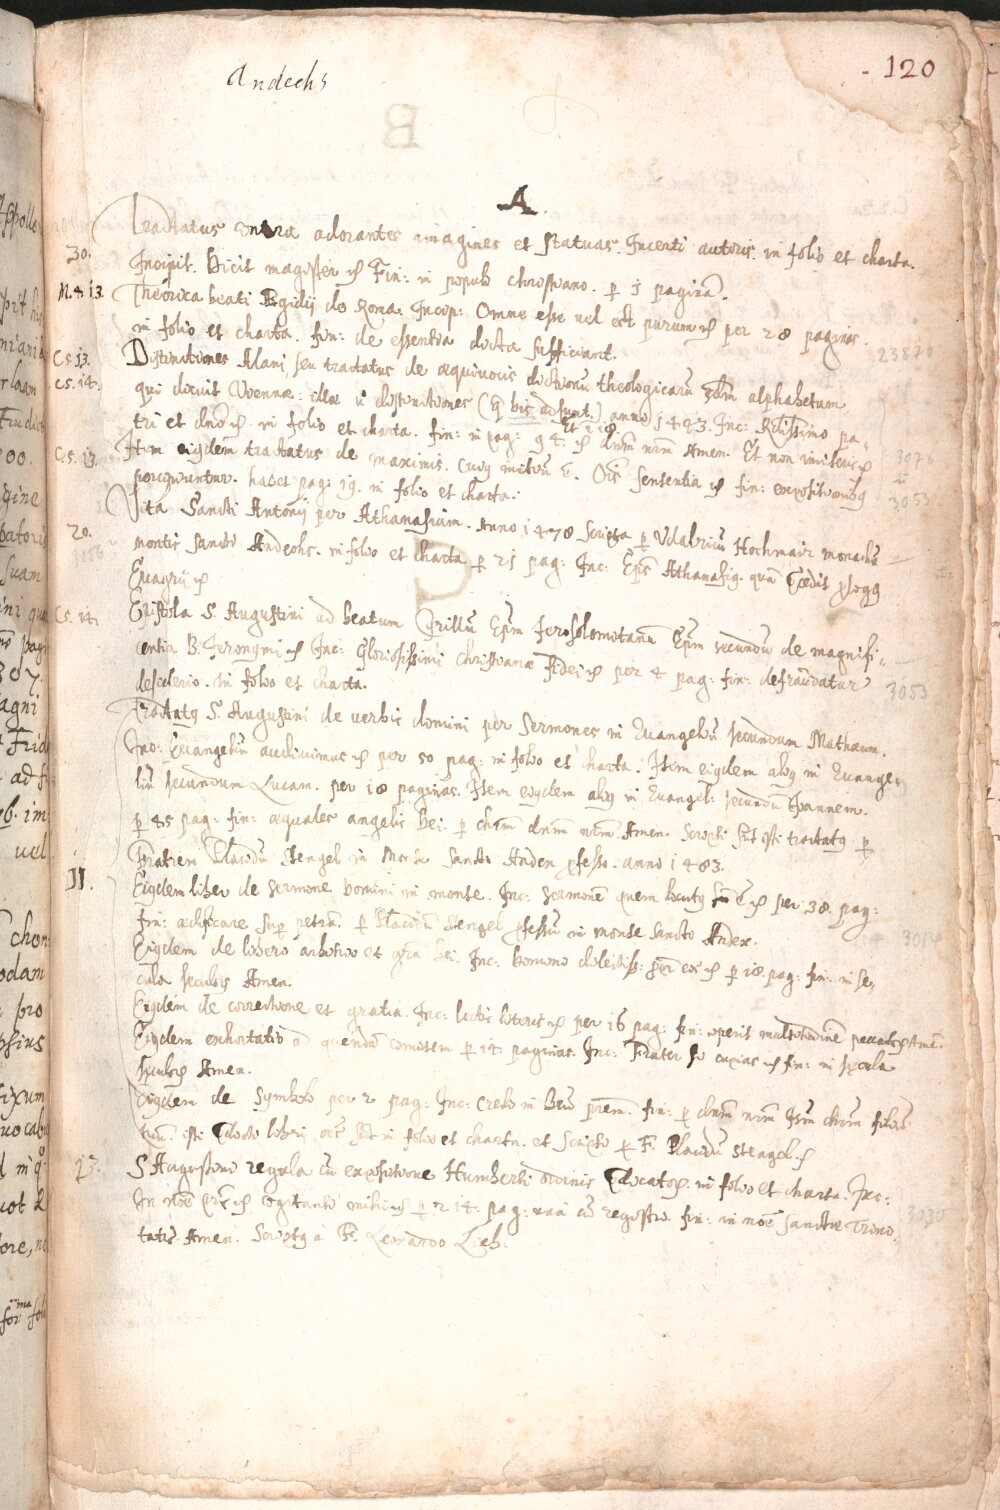 Andechs
- 120
A
Tractatus contra adorantes imagines et statuas. Incerti autoris. in folio et charta.
30. Incipit. Dicit magister ꝛc Fin: in populo christiano. p 1 pagina.
N. 8. 13. Theorica beati Egidij de Roma. Incip: Omne esse vel est purum ꝛc per 28 paginas.
in folio et charta. fin: de essentia dicta sufficiant.
23870
C. s. 13. Distinctiones Alani, seu tractatus de æquivocis dictionū theologicarū alphabetum
C. s. 14. qui docuit Viennæ: illæ distinctiones (q bis adsunt.) anno 1423. Inc: Rdissimo pa-
tri et dno ꝛc. in folio et charta. fin: in pag: 94. et 118 ꝛc dnm nrm Amen. Et non
3076
C. s. 13. Item eiusdem tractatus de maximis. Cuius initiū ē. Ois sententia ꝛc fin: expositionibus
percurruntur. habet pag: 19. in folio et charta.
3053
Vita Sancti Antonij per Athanasium. Anno 1478 scripta p Vdalricus Hochmair monachus
20. montis sancti Andechs. in folio et charta p 21 pag: Inc: Eps Athanasius.
3056
Euagrij ꝛc
C. s. 14. Epistola S. Augustini ad beatum Cyrillū Epm Ierosolomotanū Epm secundū de magnifi-
centia B. Ieronymi ꝛc Inc: Gloriosissimi Christianæ Fidei ꝛc per 4 pag: fin: defraudatur
desiderio. in folio et charta.
3053
Tractatus S. Augustini de verbis domini per sermones in Evangeliū secundum Mathæum.
Inc: Evangeliū audivimus ꝛc per 50 pag: in folio et charta. Item eiusdem alius in Evange-
liū secundum Lucam. per 18 paginas. Item eiusdem alius in Evangel: secundū Ioannem.
p 85 pag: fin: æquales angelis Dei. p chrm dnm nrm Amen. Scripti sunt isti tractatus p
Fratrem Placidū Stengel in Monte sancto Andex professo. anno 1483.
II. Eiusdem liber de sermone Domini in monte. Inc: Sermonē quem locutus ꝛc per 38 pag:
fin: ædificare sup petrā. p Placidū Stengel professū in monte sancto Andex.
3054
Eiusdem de libero arbitrio et gra Dei. Inc: Domino ꝛc p 18 pag: fin: in se-
cula seculorum Amen.
Eiusdem de correctione et gratia. Inc: lectis literis ꝛc per 16 pag: fin: operit multitudinē peccatorum Amē.
Eiusdem exhortatio ad quendā comitem p 14. paginas. Inc: Frater si cupias ꝛc fin: in sæcula
sæculorum Amen.
Eiusdem de Symbolo per 2 pag: Inc: Credo in Deū prem. fin: p dnm nrm Iesū chrm filiū
tuū. isti libri oes sunt in folio et charta. et scripti p F. Placidū Stengel ꝛc
13. S Augustini regula cū expositione Humberti ordinis in folio et charta. Inc:
In noe ꝛc cogitanti mihi ꝛc p 214. pag: unà cū registro. fin: in noē sanctæ Trini-
3030
tatis. Amen. Scriptus à F. Leonardo Lieb.